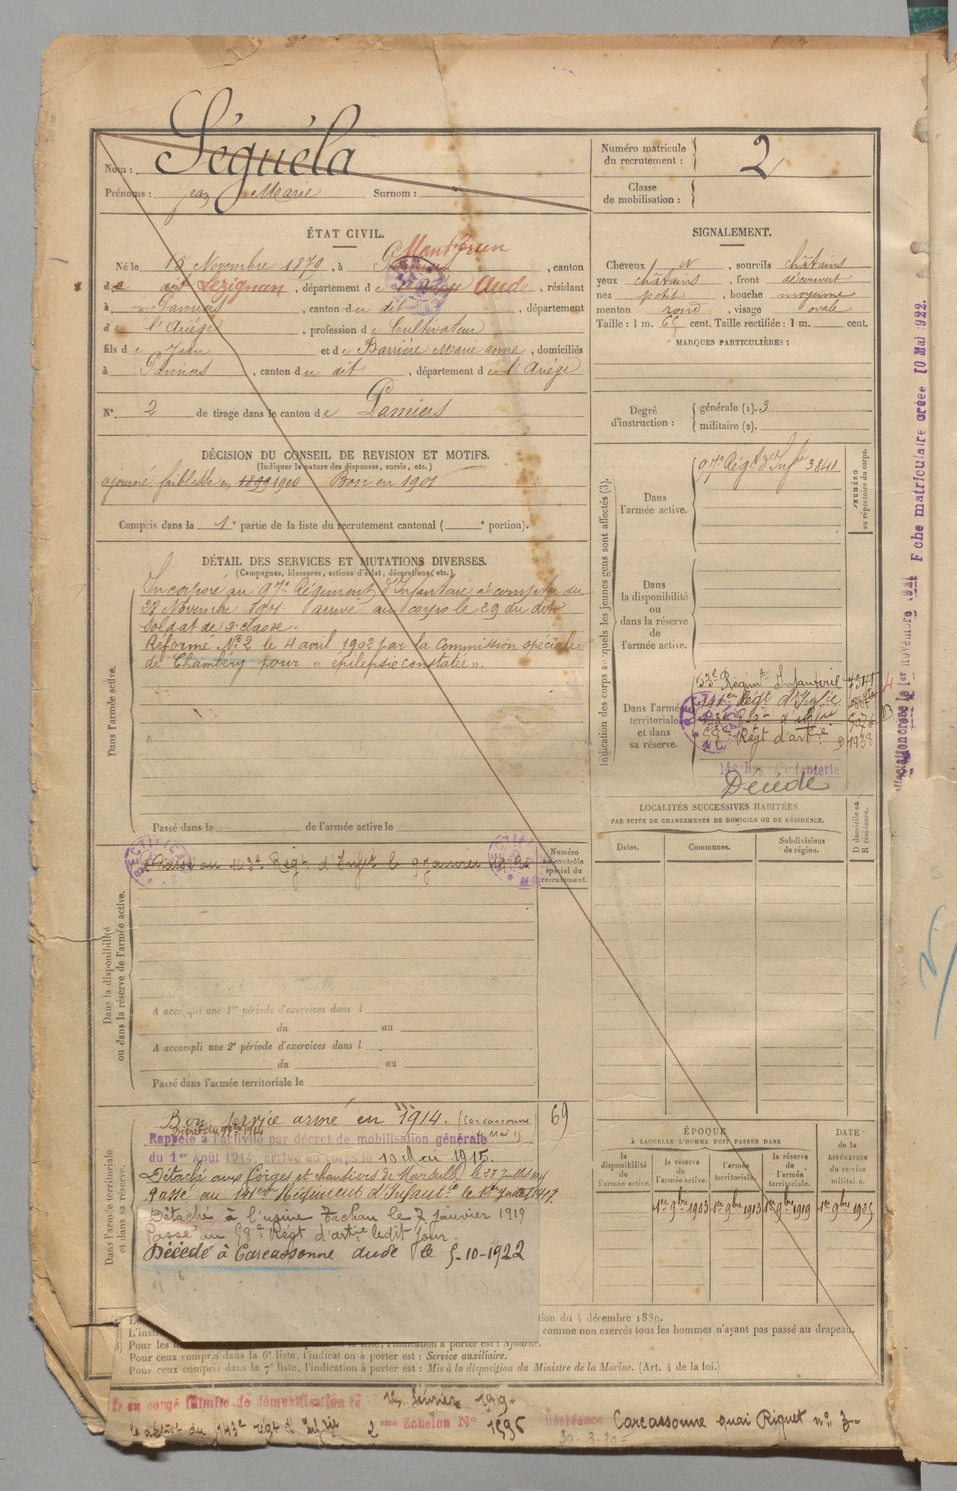 Nom : Séguéla
Prénoms : Jean Marie Surnom :
Numéro matricule du recrutement : 2
Classe de mobilisation :
ÉTAT CIVIL.
Né le 15 Novembre 1879, à Montbrun, canton
de dit Lézignan, département de Aude, résidant
à Pamiers, canton du dit, département
de l'Ariège, profession de Cultivateur
fils de Jean et de Barrière Marie anne, domiciliés
à Pamiers, canton du dit, département de l'Ariège
N° 2 de tirage dans le canton de Pamiers
SIGNALEMENT.
Cheveux et, sourcils châtains
yeux châtains, front découvert
nez petit, bouche moyenne
menton rond, visage ovale
Taille : 1 m. 65 cent. Taille rectifiée : 1 m. cent.
MARQUES PARTICULIÈRES :
Degré d'instruction : générale (1). 3
militaire (2).
DÉCISION DU CONSEIL DE REVISION ET MOTIFS.
(Indiquer la nature des dispenses, sursis, etc.)
ajourné faiblesse en 1899 1900 Bon en 1901
Compris dans la 1e partie de la liste du recrutement cantonal ( e portion).
DÉTAIL DES SERVICES ET MUTATIONS DIVERSES.
(Campagnes, blessures, actions d'éclat, décorations, etc.)
Dans l'armée active.
Incorporé au 97e Régiment d'Infanterie à compter du
23 Novembre 1901 arrivé au corps le 29 du dit
Soldat de 2e classe.
Réformé N° 2 le 4 avril 1902 par la Commission spéciale
de Chambéry pour « épilepsie constatée ».
Passé dans la de l'armée active le
Indication des corps auxquels les jeunes gens sont affectés (3).
NUMÉRO au répertoire du corps.
Dans l'armée active.
97e Régt d'Infie 3841
Dans la disponibilité ou dans la réserve de l'armée active.
Dans l'armée territoriale et dans sa réserve.
53e Régimt Infanterie
141er Régt d'Infie
58e Régt d'artie
143e Rég. d'Infanterie
Décédé
Dans la disponibilité ou dans la réserve de l'armée active.
Passé au 143e Régt d'Infie le 9 janvier
Numéro au contrôle spécial du recrutement.
A accompli une 1re période d'exercices dans l
du au
A accompli une 2e période d'exercices dans l
du au
Passé dans l'armée territoriale le
LOCALITÉS SUCCESSIVES HABITÉES
PAR SUITE DE CHANGEMENTS DE DOMICILE OU DE RÉSIDENCE.
D domicile ou R résidence.
Dates. Communes. Subdivisions de région.
Dans l'armée territoriale et dans sa réserve.
Bon service armé en 1914. (Carcassonne 69
Rappelé à l'activité par décret de mobilisation générale
du 1er Août 1914, arrivé au corps le 10 Mai 1915.
Détaché aux Forges et chantiers de Marseille le 27 Juillet
Passé au 141er Régiment d'Infantie le 1er Juillet 1917.
Détaché à l'usine Zachau le 7 janvier 1919
Passé au 58e Régt d'artie ledit jour.
Décédé à Carcassonne aude le 5-10-1922
ÉPOQUE
A LAQUELLE L'HOMME DOIT PASSER DANS
DATE de la LIBÉRATION du service militaire.
la disponibilité de l'armée active.
la réserve de l'armée active.
l'armée territoriale.
la réserve de l'armée territoriale.
1er 9bre 1903 1er 9bre 1913 1er 9bre 1919 1er 9bre 1925
tion du 4 décembre 1889.
comme non exercés tous les hommes n'ayant pas passé au drapeau.
l'indication à porter est : Ajourné.
Pour ceux compris dans la 6e liste, l'indication à porter est : Service auxiliaire.
Pour ceux compris dans la 7e liste, l'indication à porter est : Mis à la disposition du Ministre de la Marine. (Art. 4 de la loi.)
en congé illimité de démobilisation le février 1919
143e régt d'Infie 2 eme Echelon N° 1596 Résidence Carcassonne quai Riquet n° 3
Fiche matriculaire créée 10 Mai 1922.